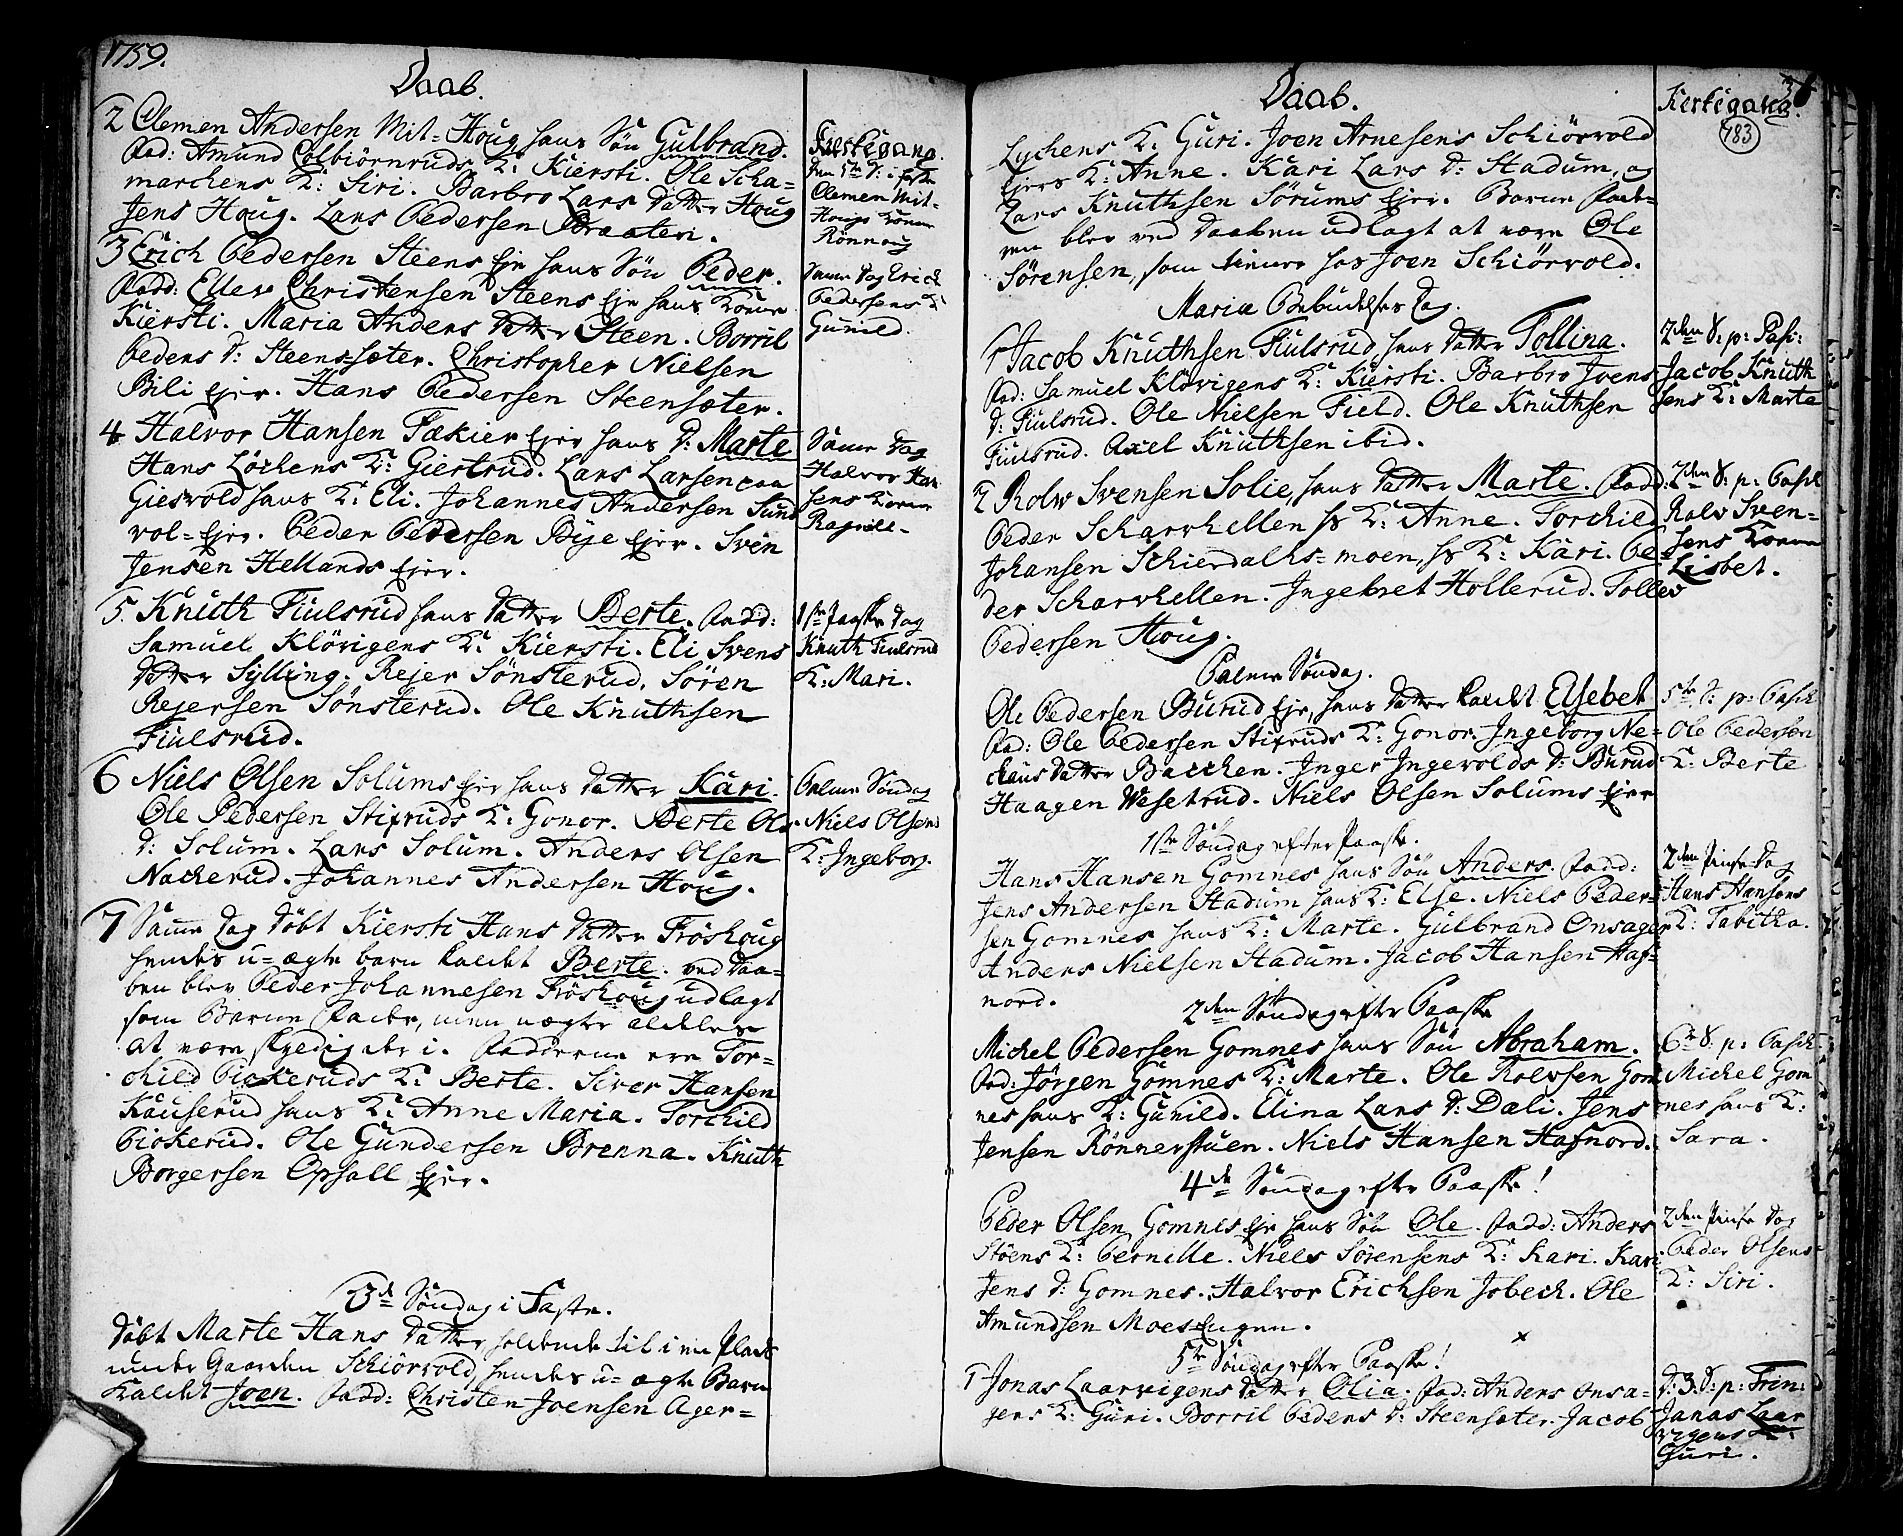 1759.
Daab.
2 Clemen Andersen Mit-Houg hans Sön Gulbrand.
Fad: Amund Colbiörnruds K: Kiersti. Ole Scha-
marchens K: Siri. Barbro Lars Datter Houg
Jens Houg. Lars Pedersen Braaten.
3 Erich Pedersen Steens Eje hans Sön Peder.
Fadd: Ellev Christensen Steens Eje hans Kone
Kiersti. Maria Anders Datter Steen. Borril
Peders D: Steens-sæter. Christopher Nielsen
Bili Ejer. Hans Pedersen Steensæter.
4 Halvor Hansen Fækier Ejer hans D: Marte
Hans Löchens K: Giertrud. Lars Larsen paa
Giesvold hans K: Eli. Johannes Andersen Sund
vol-Ejer. Peder Pedersen Bye Ejer. Sven
Jensen Hellands Ejer.
5. Knuth Fiulsrud hans Datter Berte. Fadd:
Samuel Klövigens K: Kiersti. Eli Svens
Datter Sylling. Rejer Sönsterud. Sören
Rejersen Sönsterud. Ole Knuthsen
Fiulsrud.
6 Niels Olsen Solums Eje hans Datter Kari.
Ole Pedersen Stixruds K: Gonor. Berte Ols
D: Solum. Lars Solum. Anders Olsen
Nackerud. Johannes Andersen Houg.
7 Samme Dag döbt Kiersti Hans Datter Fröshoug
hendes u-ægte barn kaldet Berte. ved Daa-
ben blev Peder Johannesen Fröshoug udlagt
som Barne Fader, men nægter aldeles
at være skyldig der i. Fadderne ere Tor-
child Piokeruds K: Berte. Siver Hansen
Kauserud hans K: Anne Maria. Torchild
Piokerud. Ole Gundersen Brenna. Knuth
Borgersen Opsall Ejer.
3de Söndag i Faste.
Döbt Marte Hans Datter, holdende til i en Plads
under Gaarden Schiörvold, hendes u-ægte Barn
Kaldet Joen. Fadd: Christen Joensen Ager-
Kirkegang.
Den 5te D: i Faste
Clemen Mit-
Hougs Kone
Rönnoug
Samme Dag Erich
Pedersens K:
Gunild.
Samme Dag
Halvor Han
sens Kone
Ragnild.
1ste Paaske Dag
Knuth Fiulsrud
K: Mari.
Palme Söndag
Niels Olsens
K: Ingeborg.
Daab.
Lychens K: Guri. Joen Arnesens Schiörvold
Ejers K: Anne. Kari Lars D: Stadum, og
Lars Knuthsen Sörums Ejer. Barne Fade-
ren blev ved Daaben udlagt at være Ole
Sörensen, som tiener hos Joen Schiörvold.
Maria Bebudelses Dag.
1 Jacob Knuthsen Fiulsrud hans Datter Tollina.
Fad: Samuel Klövigens K: Kiersti. Barbro Joens
D: Fiulsrud. Ole Nielsen Field. Ole Knuthsen
Fiulsrud. Axel Knuthsen ibid.
2 Rolv Svensen Solie, hans Datter Marte. Fadd:
Peder Scharvhellen hs K: Anne. Torchild
Johansen Schierdalhs-moen, hs K: Kari. Pe-
der Scharvhellen. Ingebret Hollerud. Tollev
Pedersen Houg.
Palme Söndag.
Ole Pedersen Burud Eje, hans Datter kaldt Elsebet
Fad: Ole Pedersen Stixruds K: Gonor. Ingeborg Ne-
chaus Datter Bacchen. Inger Ingevolds D: Burud
Haagen Wesetrud. Niels Olsen Solums Ejer
1ste Söndag efter Paaske.
Hans Hansen Gomnes hans Sön Anders. Fadd:
Jens Andersen Stadum hans K: Else. Niels Peder-
sen Gomnes hans K: Marte. Gulbrand Onsager
Anders Nielsen Stadum. Jacob Hansen Haf-
nord.
2den Söndag efter Paaske
Michel Pedersen Gomnes hans Sön Abraham.
Fad: Jörgen Gomnes K: Marte. Ole Rolvsen Gom
nes hans K: Gunild. Elina Lars D: Dali. Jens
Jensen Rönnerstuen. Niels Hansen Hafnord.
4de Söndag efter Paaske!
Peder Olsen Gomnes Eje hans Sön Ole. Fadd: Anders
Stöens K: Pernille. Niels Sörensens K: Kari. Kari
Jens D: Gomnes. Halvor Erichsen Jobech. Ole
Amundsen Moes Eugen.
5te Söndag efter Paaske!
1 Jonas Laarvigens Datter Olia. Fad: Anders Onsa-
gers K: Guri. Borril Peders D: Steensæter. Jacob
Kirkegang.
783
2den S: p: Pasc:
Jacob Knuth
sens K: Marte
2den S: p: Pasch
Rolv Sven-
sens Kone
Lisbet.
5te S: p: Pasch
Ole Pedersen
K: Berte
2den Pinse Dag
Hans Hansens
K: Tabitha.
6te S: p: Pasch
Michel Gom
nes hans K:
Sara.
2den Pinse Dag
Peder Olsens
K: Siri.
D: 3: S: p: Trin:
Jonas Laar
vigens K:
Guri.